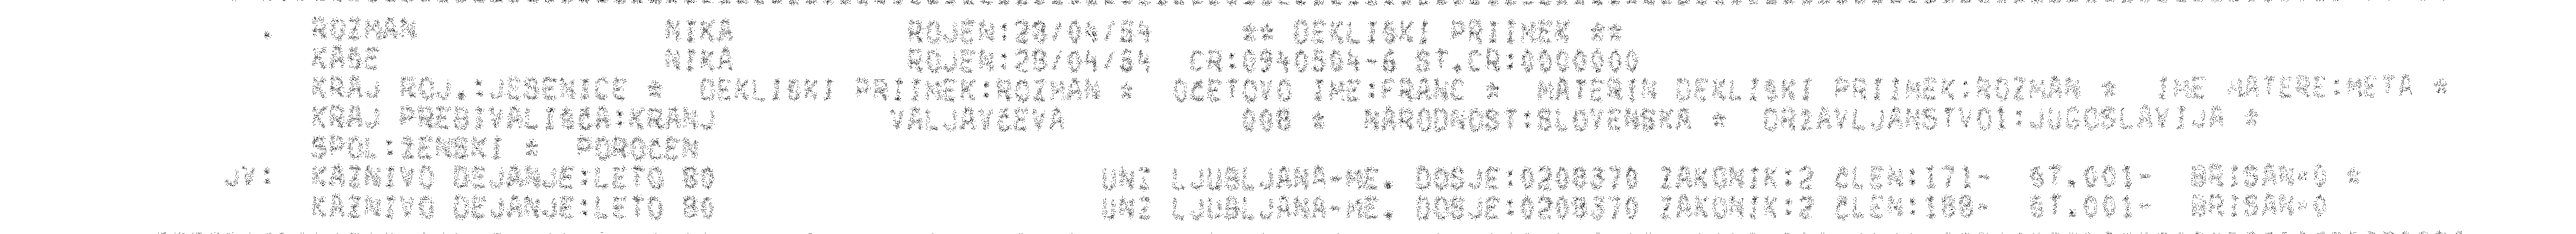 . ROZMAN NIKA ROJEN:28/04/54 ** DEKLIŠKI PRIIMEK **
KAŠE NIKA ROJEN:28/04/54 CR:0940504-6 ST.CR:0000000
KRAJ ROJ.:JESENICE * DEKLIŠKI PRIIMEK:ROZMAN * OČETOVO IME:FRANC * MATERIN DEKLIŠKI PRIIMEK:ROZMAN * IME MATERE:META *
KRAJ PREBIVALIŠČA:KRANJ VALJAVČEVA 008 * NARODNOST:SLOVENSKA * DRŽAVLJANSTVO1:JUGOSLAVIJA *
SPOL:ŽENSKI * POROČEN
JV: KAZNIVO DEJANJE:LETO 80 UNZ LJUBLJANA-ME. DOSJE:0208370 ZAKONIK:2 ČLEN:171- ST.001- BRISAN=0 *
KAZNIVO DEJANJE:LETO 80 UNZ LJUBLJANA-ME. DOSJE:0208370 ZAKONIK:2 ČLEN:188- ST.001- BRISAN=0